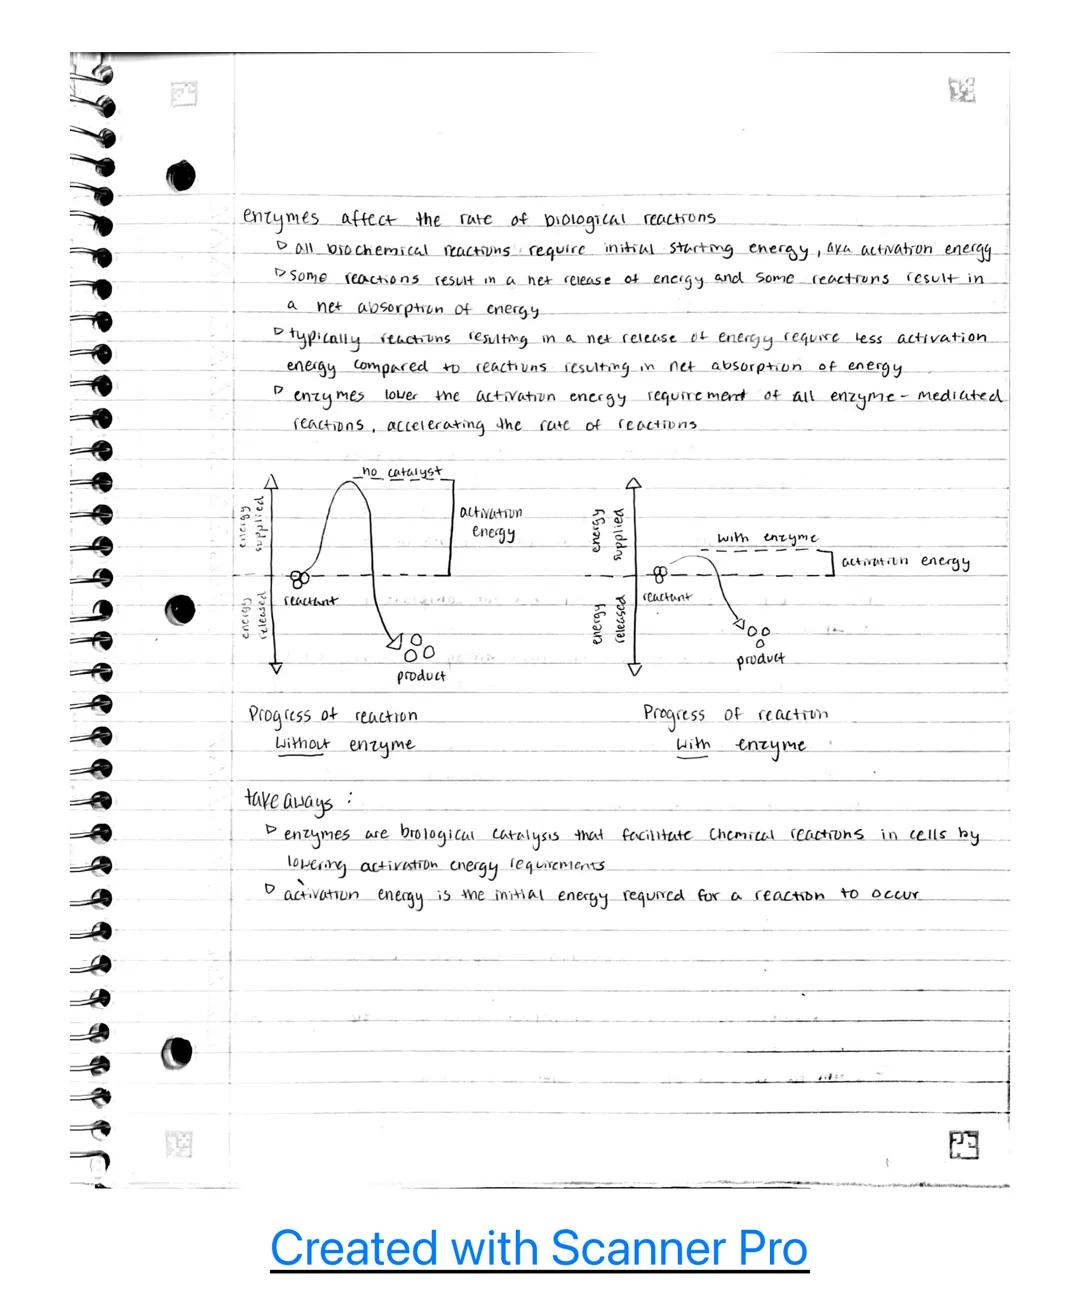 enzymes affect the rate of biological reactions
▷ all biochemical reactions require initial starting energy, aka activation energy
▷ some reactions result in a net release of energy and some reactions result in
a net absorption of energy
▷ typically reactions resulting in a net release of energy require less activation
energy compared to reactions resulting in net absorption of energy
▷ enzymes lower the activation energy requirement of all enzyme-mediated
reactions, accelerating the rate of reactions
no catalyst
energy supplied
activation
energy
reactant
energy released
product
energy supplied
with enzyme
activation energy
reactant
energy released
product
Progress of reaction
without enzyme
Progress of reaction
with enzyme
takeaways:
▷ enzymes are biological catalysis that facilitate chemical reactions in cells by
lowering activation energy requirements
▷ activation energy is the initial energy required for a reaction to occur
Created with Scanner Pro